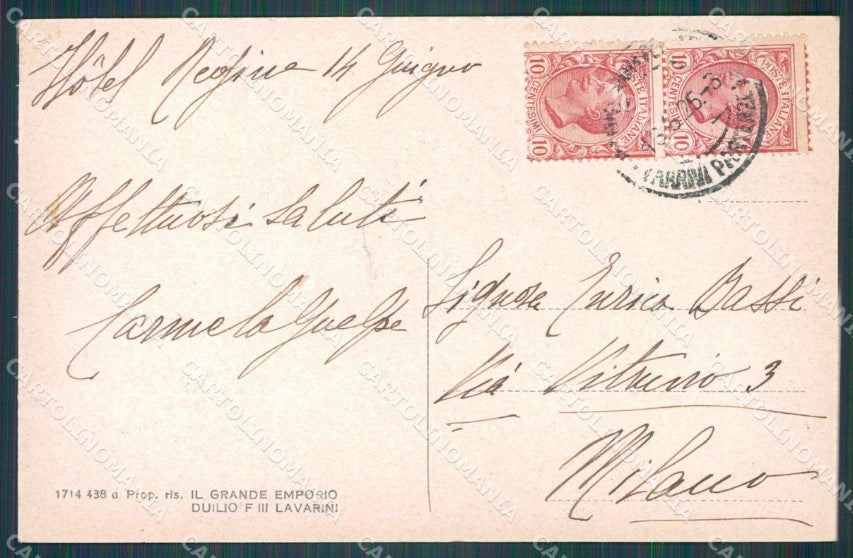 Hôtel Regina 14 Giugno
Affettuosi saluti
Carmela Guelpa
Signora Enrica Bassi
Via Vitruvio 3
Milano
1714 438 a Prop. ris. IL GRANDE EMPORIO
DUILIO F III LAVARINI
POSTE ITALIANE
10 CENTESIMI 10
POSTE ITALIANE
10 CENTESIMI 10
CARTOLINOMANIA